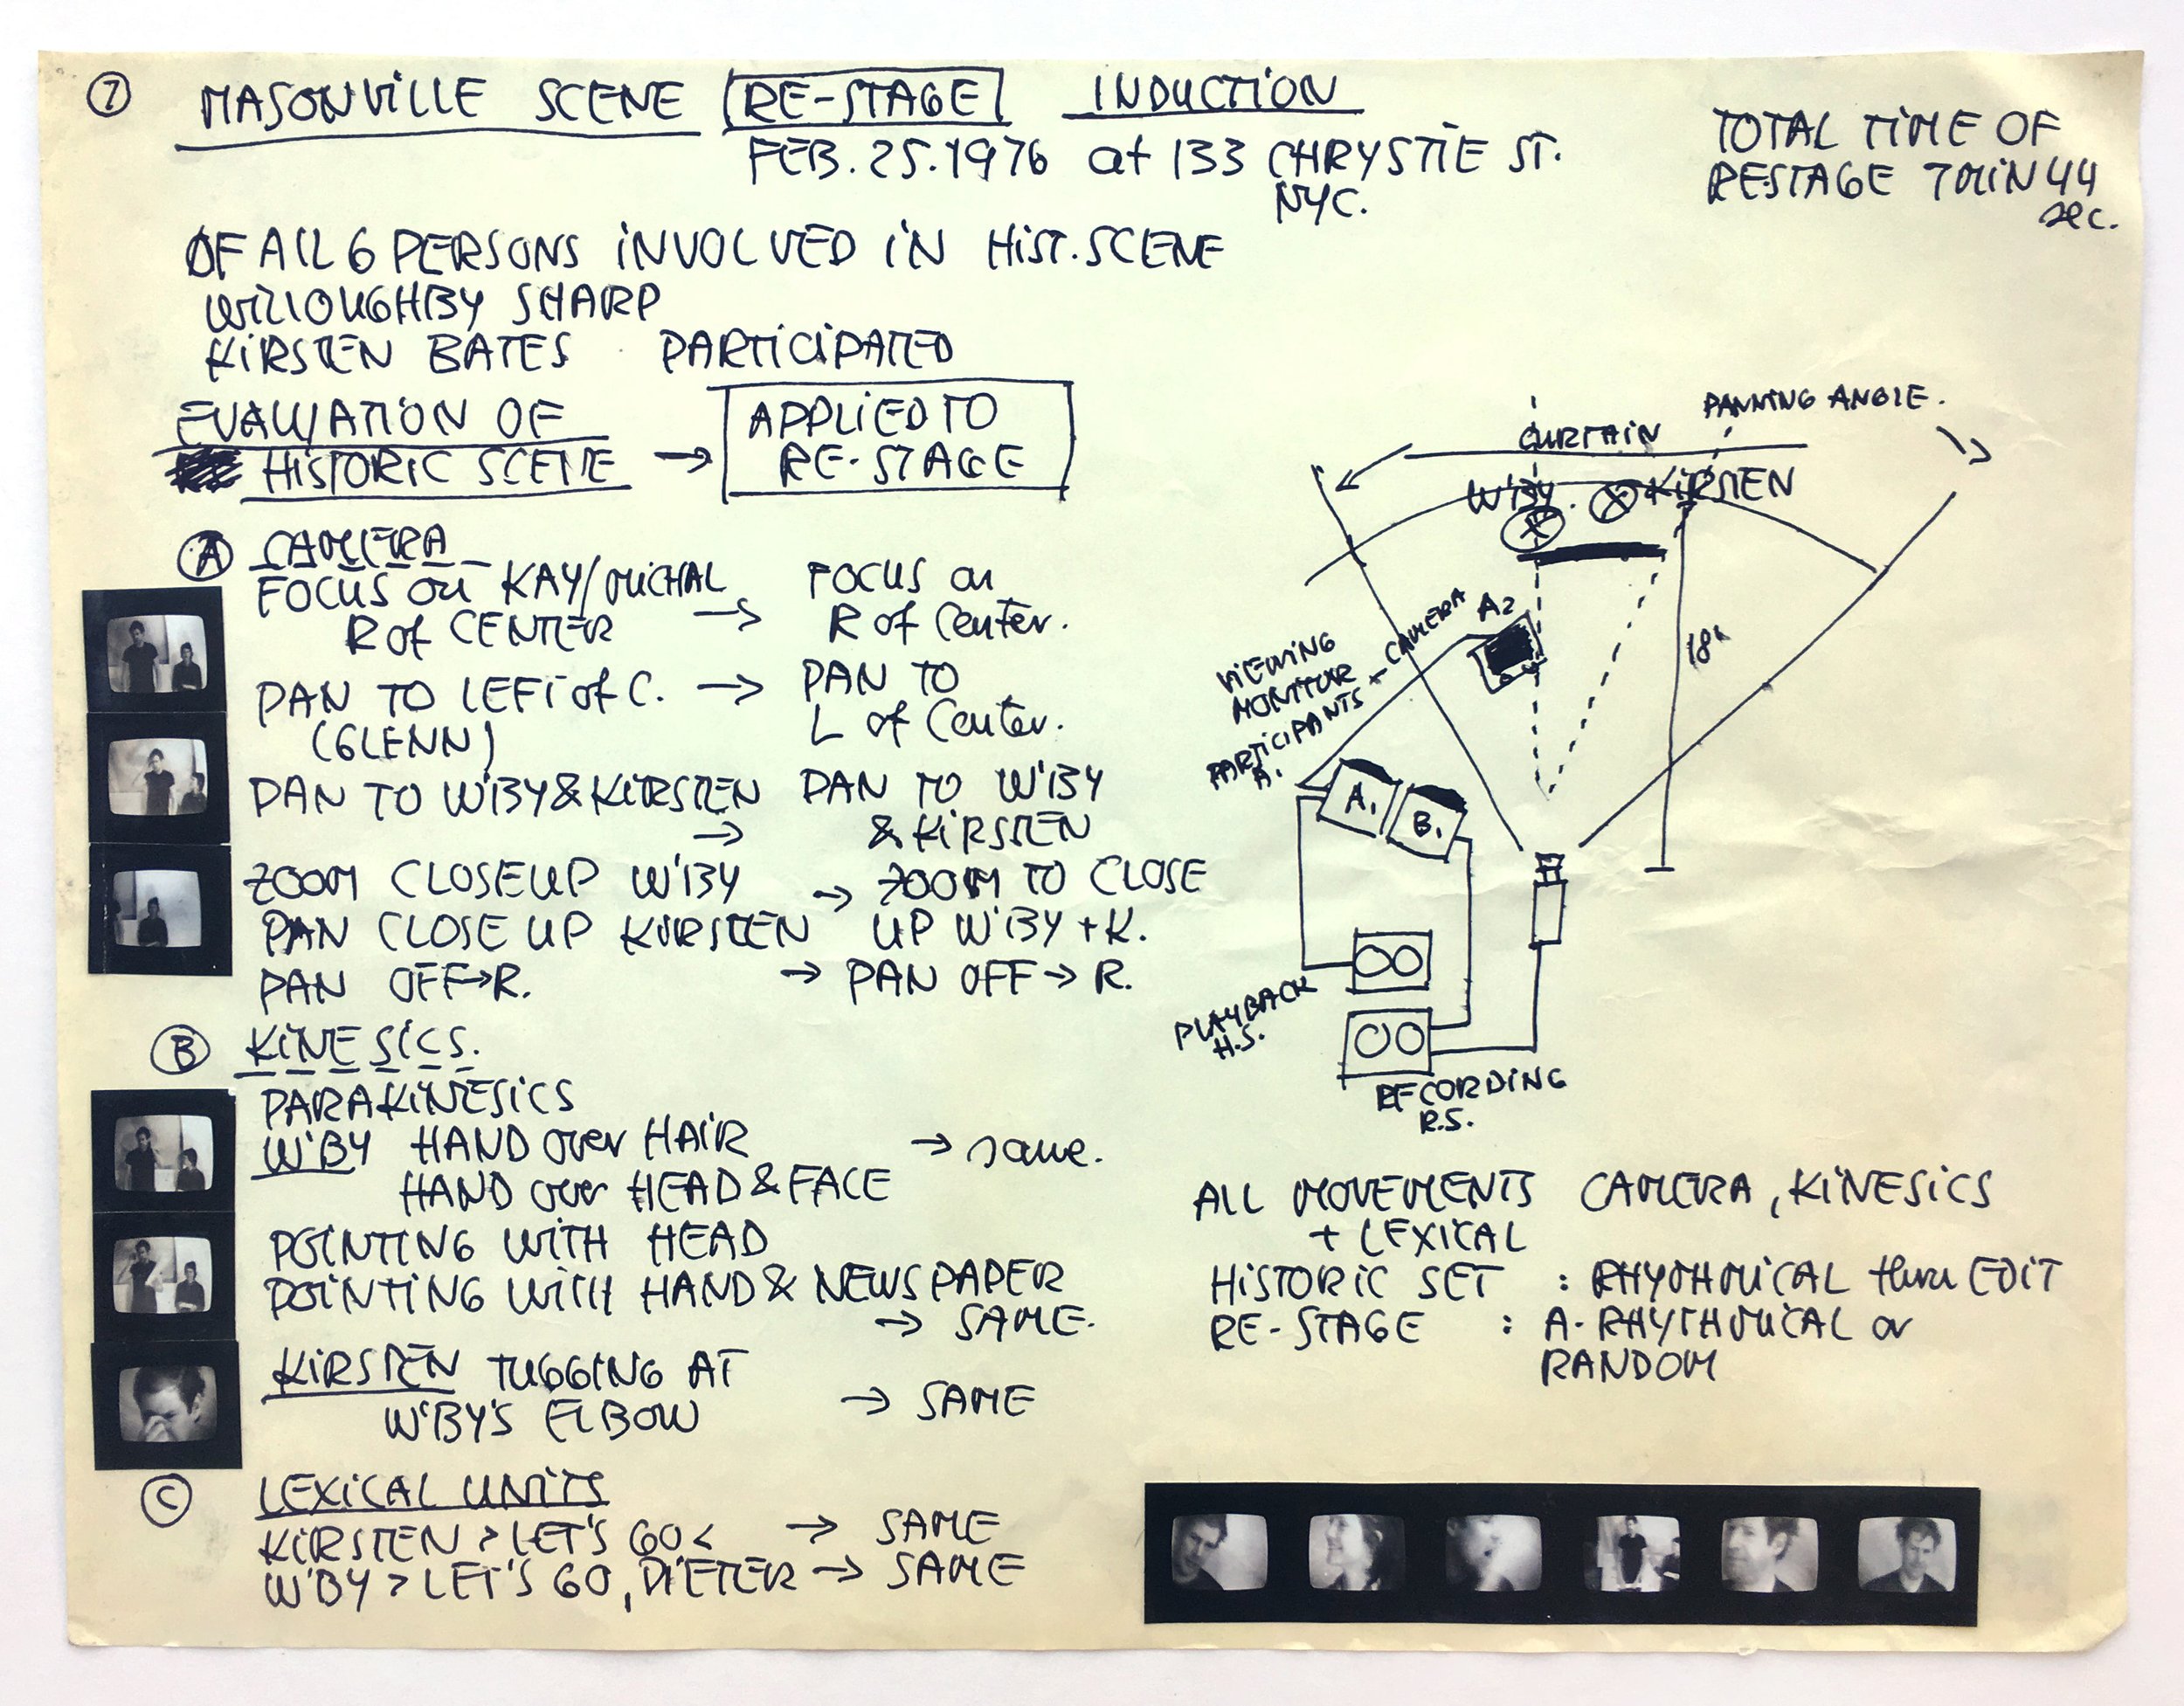 7
MASONVILLE SCENE RE-STAGE INDUCTION
FEB. 25. 1976 at 133 CHRYSTIE ST.
NYC.
TOTAL TIME OF
RESTAGE 7 MIN 44
sec.
OF ALL 6 PERSONS INVOLVED IN HIST. SCENE
WILLOUGHBY SHARP
KIRSTEN BATES PARTICIPATED
EVALUATION OF
HISTORIC SCENE → APPLIED TO
RE-STAGE
A CAMERA
FOCUS on KAY/MICHAL → FOCUS on
R of CENTER R of Center.
PAN TO LEFT of C. → PAN TO
(GLENN) L of Center.
PAN TO W'BY & KIRSTEN → PAN TO W'BY
& KIRSTEN
ZOOM CLOSEUP W'BY → ZOOM TO CLOSE
PAN CLOSE UP KIRSTEN UP W'BY + K.
PAN OFF → R. → PAN OFF → R.
B KINESICS.
PARAKINESICS
W'BY HAND over HAIR → same.
HAND over HEAD & FACE
POINTING WITH HEAD
POINTING WITH HAND & NEWSPAPER
→ SAME.
KIRSTEN TUGGING AT
W'BY'S ELBOW → SAME
C LEXICAL UNITS
KIRSTEN > LET'S GO < → SAME
W'BY > LET'S GO, DIETER → SAME
PANNING ANGLE.
CURTAIN
W'BY. KIRSTEN
A2
18'
VIEWING
MONITOR
PARTICIPANTS - CAMERA
A.
A. B.
PLAYBACK
H.S.
RECORDING
R.S.
ALL MOVEMENTS CAMERA, KINESICS
+ LEXICAL
HISTORIC SET : RHYTHMICAL thru EDIT
RE-STAGE : A-RHYTHMICAL or
RANDOM